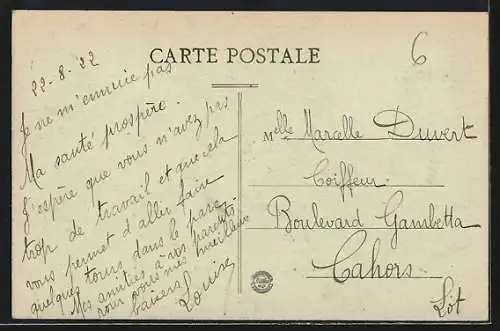 CARTE POSTALE
6
22-8-22
Je ne m'ennuie pas
Ma santé prospère.
J'espère que vous n'avez pas
trop de travail et que cela
vous permet d'aller faire
quelques tours dans le parc.
Mes amitiés à vos parents,
pour vous mes meilleurs
baisers
Louise
Melle Marcelle Duvert
Coiffeur
Boulevard Gambetta
Cahors
Lot